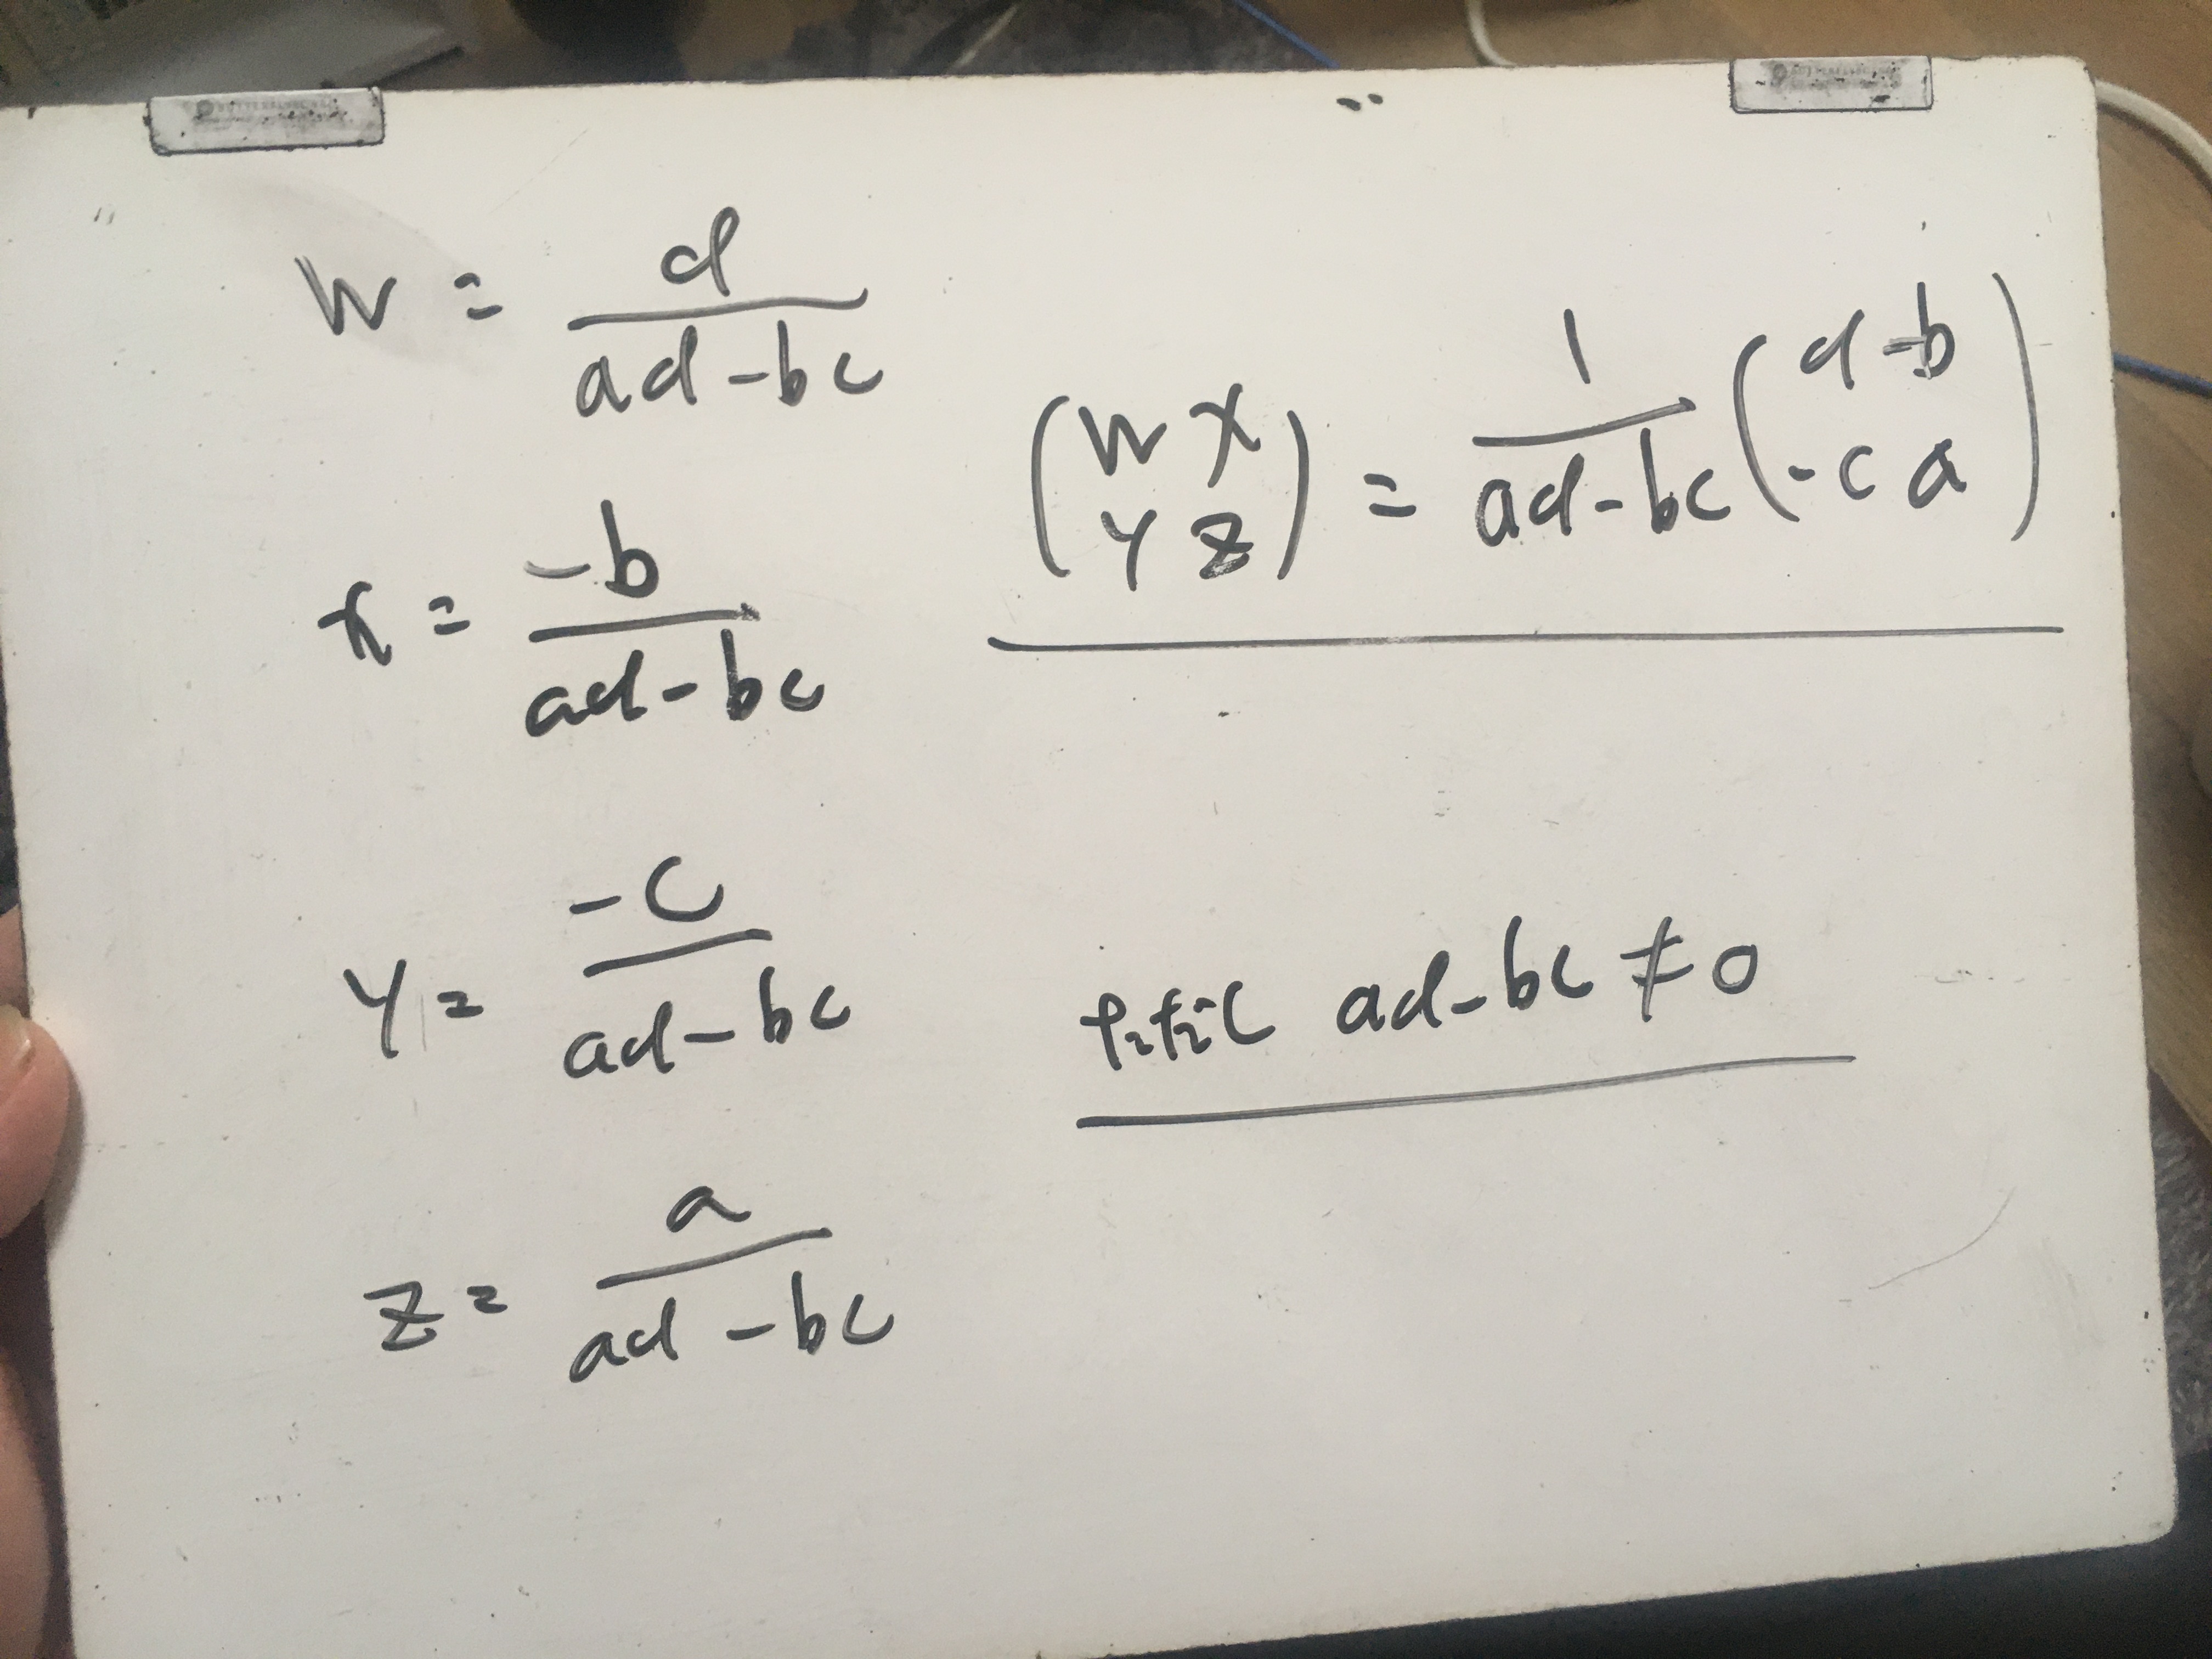 W = d / ad-bc
x = -b / ad-bc
y = -c / ad-bc
z = a / ad-bc
(W x
y z) = 1 / ad-bc (d -b
-c a)
ただし ad-bc≠0